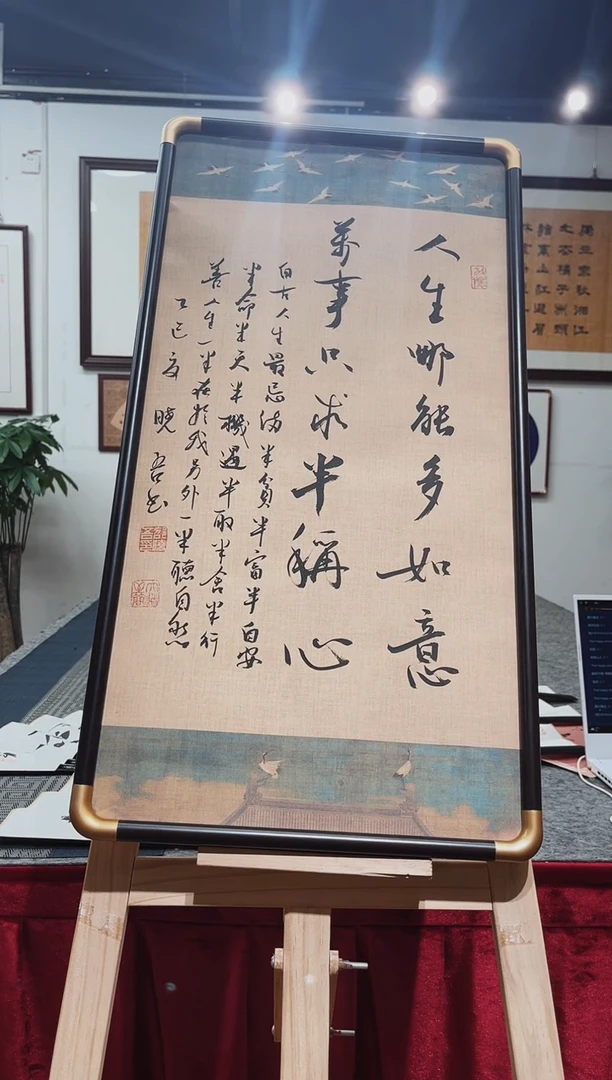 人生哪能多如意
萬事只求半稱心
自古人生最忌满半貧半富半自安
半命半天半機遇半取半舍半行
善人生一半在於我另外一半聽自然
乙巳夏 晓吾书